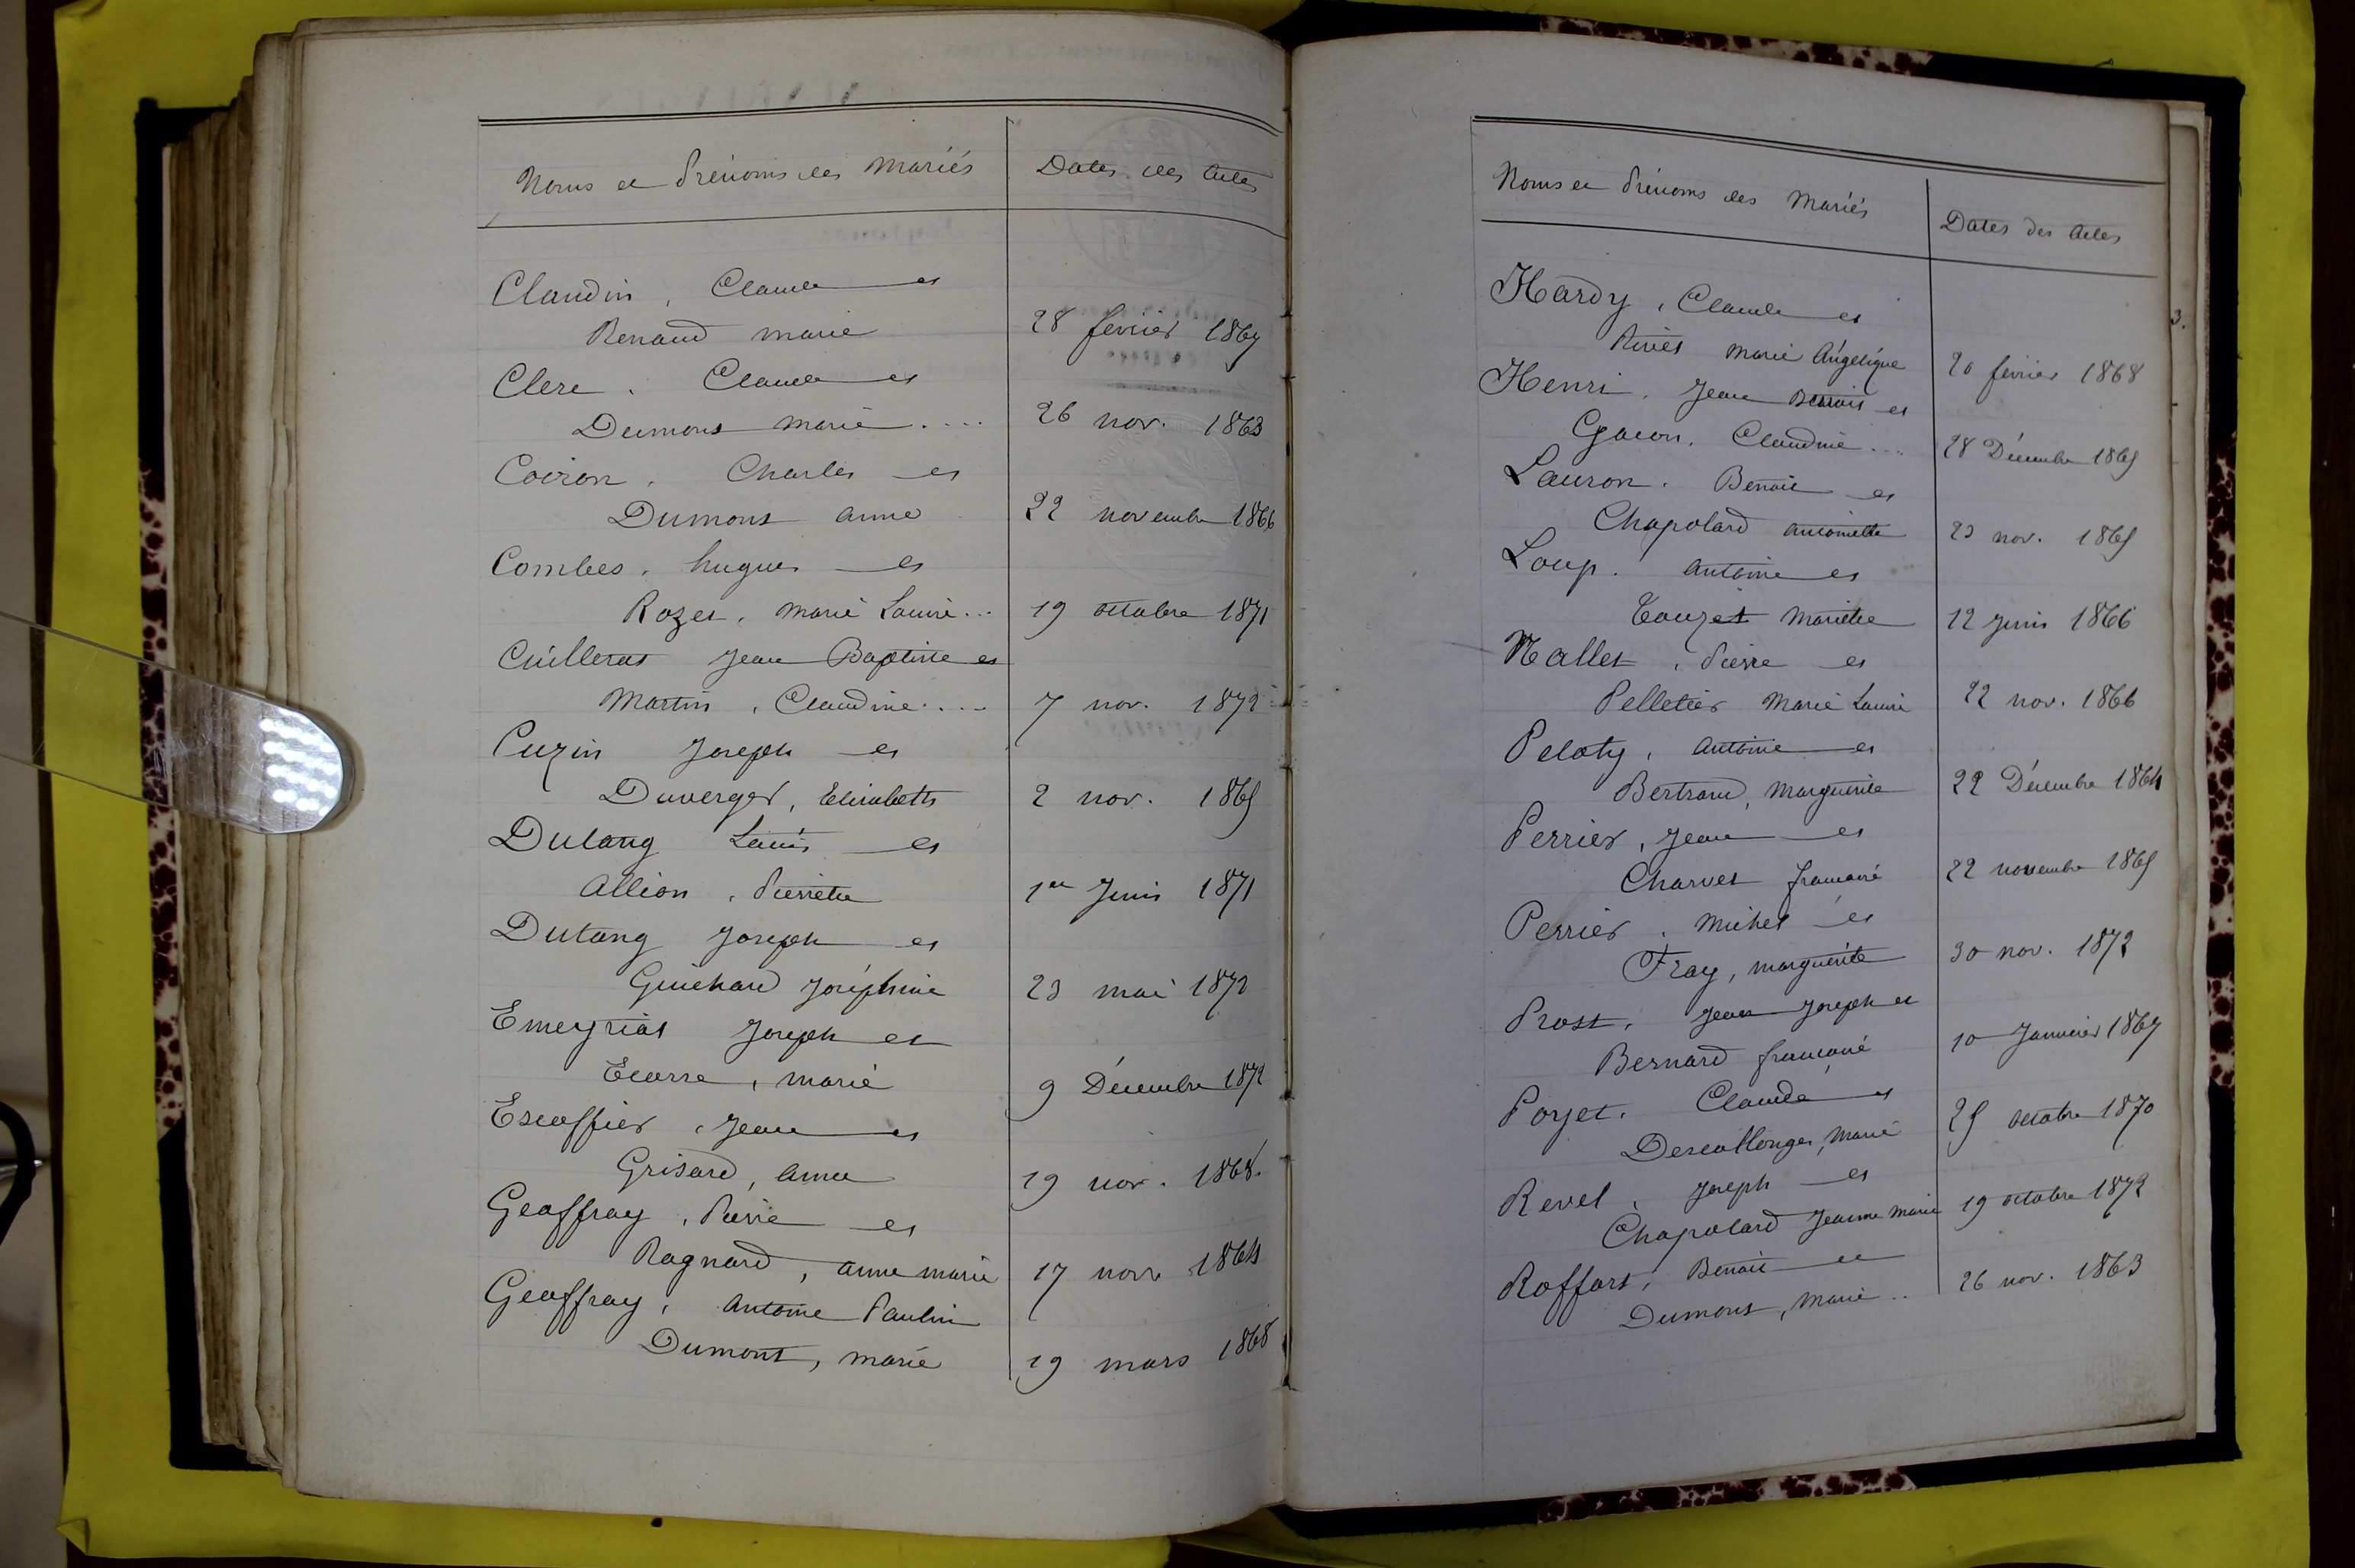 Noms et Prénoms des Mariés Dates des Actes
Claudin, Claude et
Renaud marie 28 février 1867
Clere. Claude et
Dumont marie.... 26 nov. 1863
Coiron, Charles et
Dumont anne 22 novembre 1866
Combes, hugues et
Rozet, marie Louise... 19 octobre 1871
Cuilleras Jean Baptiste et
Martin, Claudine.... 7 nov. 1872
Cuzin Joseph et
Duverger, Elisabeth 2 nov. 1865
Dutang Louis et
Allion, Pierrette 1er Juin 1871
Dutang Joseph et
Guichard Joséphine 23 mai 1872
Emeyriat Joseph et
Ecorse, marie 9 Décembre 1872
Escoffier, Jean et
Grisard, anna 19 nov. 1868.
Geoffray, Pierre et
Ragnard, anne marie 17 novr 1864
Geoffray, Antoine Paulin
Dumont, marie 19 mars 1868
Noms et Prénoms des Mariés Dates des Actes
Hardy, Claude et
marie Angélique 20 février 1868
Henri. Jean Benoit et
Gacon, Claudine... 28 Décembre 1865
Lauron. Benoit et
Chapolard antoinette 23 nov. 1865
Loup. antoine et
Touzet Mariette 12 juin 1866
Mallet, Pierre et
Pelletier Marie Louise 22 nov. 1866
Peloty, antoine et
Bertrand, Marguerite 22 Décembre 1864
Perrier, Jean et
Charvet françoise 22 novembre 1865
Perrier, Michel et
Fray, marguerite 30 nov. 1872
Prost, Jean Joseph et
Bernard françoise 10 Janvier 1867
Poyet. Claude et
Descollonges, Marie 25 octobre 1870
Revel, Joseph et
Chapolard Jeanne Marie 19 octobre 1872
Roffort, Benoit et
Dumont, Marie.. 26 nov. 1863
3.